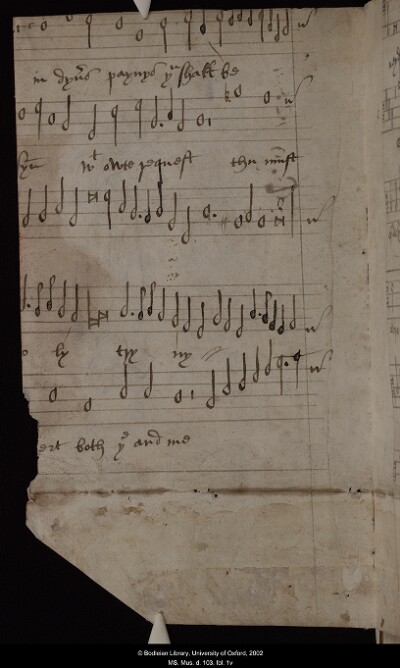 in dyūs paynys yu shall be
wt owte request thu must
ly try ny
ert both ye and me
© Bodleian Library, University of Oxford, 2002
MS. Mus. d. 103, fol. 1v